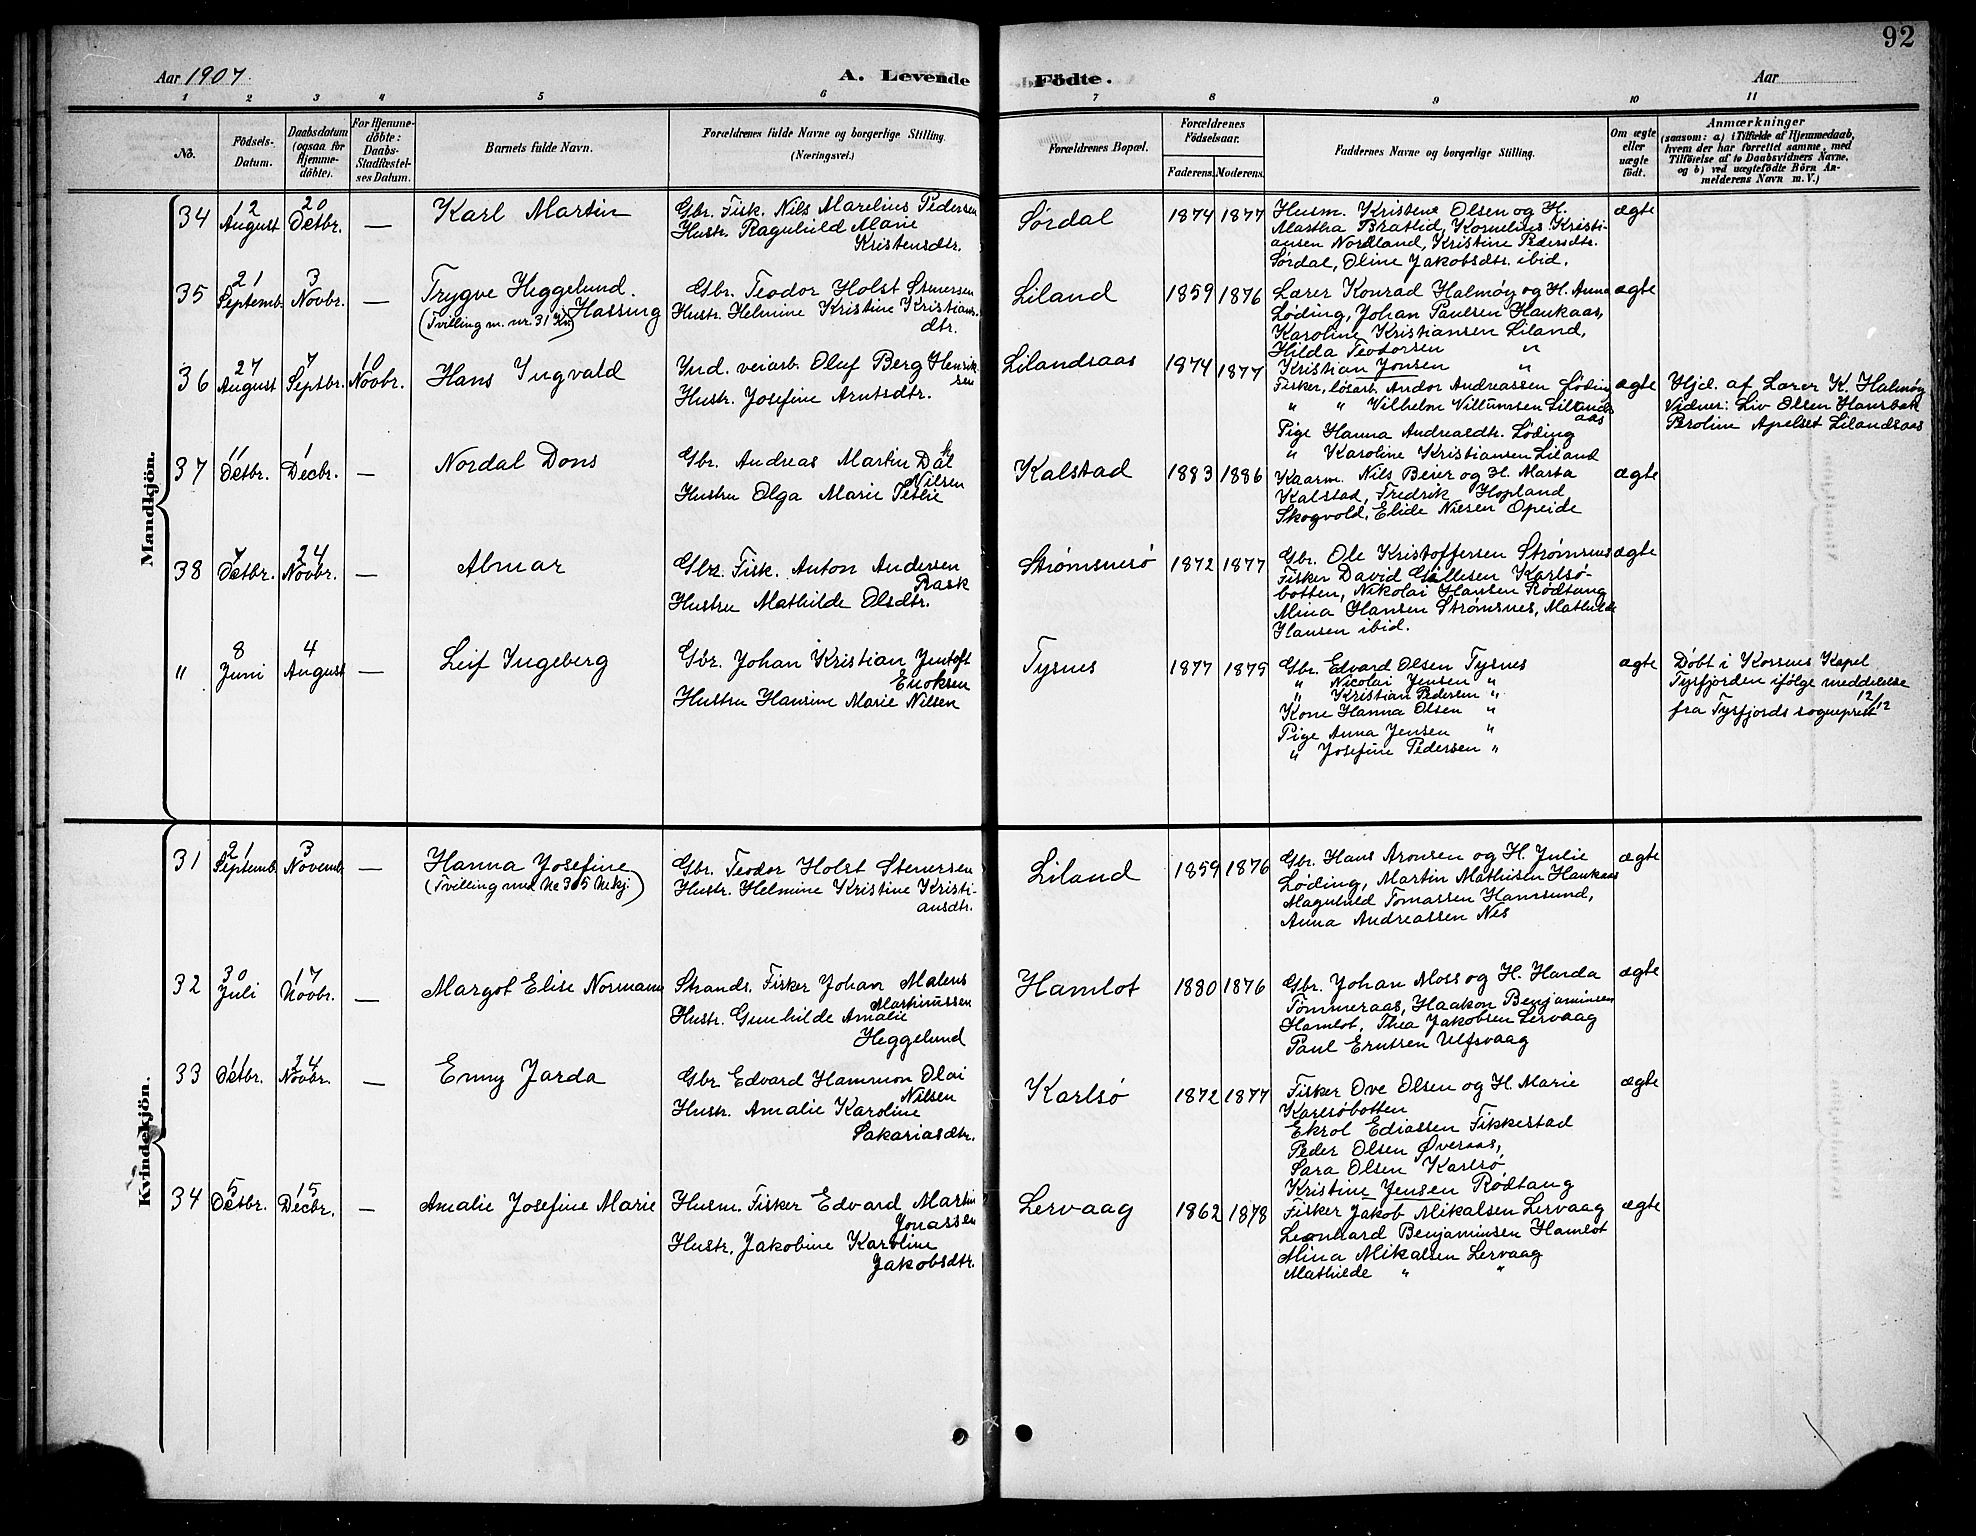 92
Aar 1907.
A. Levende Födte.
Aar
1 2 3 4 5 6 7 8 9 10 11
No.
Födsels-Datum.
Daabsdatum (ogsaa for Hjemmedöbte).
For Hjemmedöbte: Daabs-Stadfæstelses Datum.
Barnets fulde Navn.
Forældrenes fulde Navne og borgerlige Stilling. (Næringsvei.)
Forældrenes Bopæl.
Forældrenes Födselsaar.
Faderens. Moderens.
Faddernes Navne og borgerlige Stilling.
Om ægte eller uægte födt.
Anmærkninger
(saasom: a) i Tilfælde af Hjemmedaab,
hvem der har forrettet samme, med
Tilföielse af to Daabsvidners Navne.
og b) ved uægtefödte Börn An-
melderens Navn m. V.)
Mandkjön.
34
12 August
20 Octbr.
—
Karl Martin
Gbr. Fisk. Nils Marelius Pedersen
Hustr. Ragnhild Marie
Kristensdtr.
Sørdal
1874 1877
Husm. Kristene Olsen og H.
Martha Bratlid, Kornelius Kristi-
ansen Nordland, Kristine Pedersdtr.
Sørdal, Oline Jakobsdtr. ibid.
ægte
35
21 Septemb.
3 Novbr.
—
Trygve Heggelund.
Hassing
(Tvilling m. nr. 31 Kv.)
Gbr. Teodor Holst Stenersen
Hustr. Helmine Kristine Kristians-
dtr.
Liland
1859 1876
Lærer Konrad Halmøy og H. Anna
Løding, Johan Paulsen Haukaas,
Karoline Kristiansen Liland,
Hilda Teodorsen "
ægte
36
27 August
7 Septbr.
10 Novbr.
Hans Ingvald
Ind. veiarb. Oluf Berg Henrik-
sen
Hustr. Josefine Arntsdtr.
Lilandsaas
1874 1877
Kristian Jonsen "
Fisker, løsarb. Andor Andreassen Løding
" " Vilhelm Villumsen Lilands
aas
Pige Hanna Andreasdtr. Løding
" Karoline Kristiansen Liland
ægte
Hjd. af Lærer K. Halmøy
Vidner: Liv Olsen Hansbak
Peroline Apelset Lilandsaas
37
11 Octbr.
1 Decbr.
—
Nordal Dons
Gbr. Andreas Martin Dal
Nilsen
Hustru Olga Marie Teslie
Kalstad
1883 1886
Kaarm. Nils Beier og H. Marta
Kalstad, Fredrik Hopland
Skogvold, Elide Nilsen Opeide
ægte
38
7 Octbr.
24 Novbr.
—
Almar
Gbr. Fisk. Anton Andersen
Rask
Hustru Mathilde Olsdtr.
Strømsnesø
1872 1877
Gbr. Ole Kristoffersen Strømsnes
Fisker David Gillesen Karlsø-
botten, Nikolai Hansen Rødtang
Mina Hansen Strømsnes, Mathilde
Hansen ibid.
ægte
"
8 Juni
4 August
—
Leif Ingeberg
Gbr. Johan Kristian Jentoft
Enoksen
Hustru Hansine Marie Nilsen
Tysnes
1877 1879
Gbr. Edvard Olsen Tysnes
" Nicolai Jensen "
" Kristian Pedersen "
Kone Hanna Olsen "
Pige Anna Jensen "
" Josefine Pedersen "
ægte
Døbt i Korsnes Kapel
Tysfjorden ifølge meddelelse
fra Tysfjords sogneprest 12/12
Kvindekjön.
31
21 Septemb.
3 Novemb.
—
Hanna Josefine
(Tvilling med No 35 Mkj.)
Gbr. Teodor Holst Stenersen
Hustr. Helmine Kristine Kristi-
ansdtr.
Liland
1859 1876
Gbr. Hans Aronsen og H. Julie
Løding, Martin Mathisen Haukaas
Magnhild Tomassen Hamsund,
Anna Andreassen Nes
ægte
32
30 Juli
17 Novbr.
—
Margot Elise Normann
Strands. Fisker Johan Malens
Martinussen
Hustr. Gunhilde Amalie
Heggelund
Hamlot
1880 1876
Gbr. Johan Moss og H. Harda
Tømmeraas, Haakon Benjaminsen
Hamlot, Thea Jakobsen Lervaag
Paul Erntsen Ulfsvaag
ægte
33
11 Octbr.
24 Novbr.
—
Enny Jarda
Gbr Edvard Hammon Olai
Nilsen
Hustr. Amalie Karoline
Sakariasdtr.
Karlsø
1872 1877
Fisker Ove Olsen og H. Marie
Karlsøbotten
Ekrol Ediassen Fikkestad
Peder Olsen Øveraas,
Sara Olsen Karlsø
Kristine Jensen Rødtang
ægte
34
5 Octbr.
15 Decbr.
—
Amalie Josefine Marie
Husm. Fisker Edvard Martin
Jonassen
Hustr. Jakobine Karoline
Jakobsdtr.
Lervaag
1862 1878
Fisker Jakob Mikalsen Lervaag
Leonhard Benjaminsen Hamlot
Mina Mikalsen Lervaag
Mathilde " "
ægte